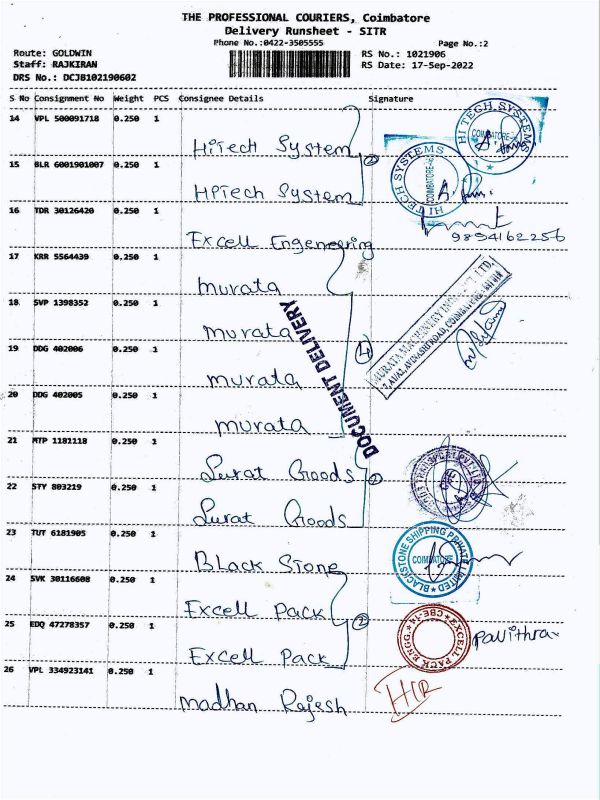 THE PROFESSIONAL COURIERS, Coimbatore
Delivery Runsheet - SITR
Phone No.:0422-3505555 Page No.:2
Route: GOLDWIN RS No.: 1021906
Staff: RAJKIRAN RS Date: 17-Sep-2022
DRS No.: DCJB102190602
S No Consignment No Weight PCS Consignee Details Signature
14 VPL 500091718 0.250 1
HiTech System
HI TECH SYSTEMS
COIMBATORE
15 BLR 6001901007 0.250 1
HiTech System
2
HI TECH SYSTEMS
COIMBATORE
16 TDR 30126420 0.250 1
Excell Engeneering
9894162256
17 KRR 5564439 0.250 1
murata
18 SVP 1398352 0.250 1
murata
19 DDG 402006 0.250 1
murata
4
20 DDG 402005 0.250 1
murata
DOCUMENT DELIVERY
MURATA MACHINERY INDIA PVT. LTD.
AVINASHI ROAD, COIMBATORE
21 MTP 1181118 0.250 1
Surat Goods
2
22 STY 803219 0.250 1
Surat Goods
TRANSPORT PVT LTD
CBE
23 TUT 6181905 0.250 1
Black Stone
BLACKSTONE SHIPPING PRIVATE LIMITED
COIMBATORE
24 SVK 30116608 0.250 1
Excell Pack
25 EDQ 47278357 0.250 1
Excell Pack
2
EXCELL PACK ENGG. CBE-14
Pavithra
26 VPL 334923141 0.250 1
madhan Rajesh